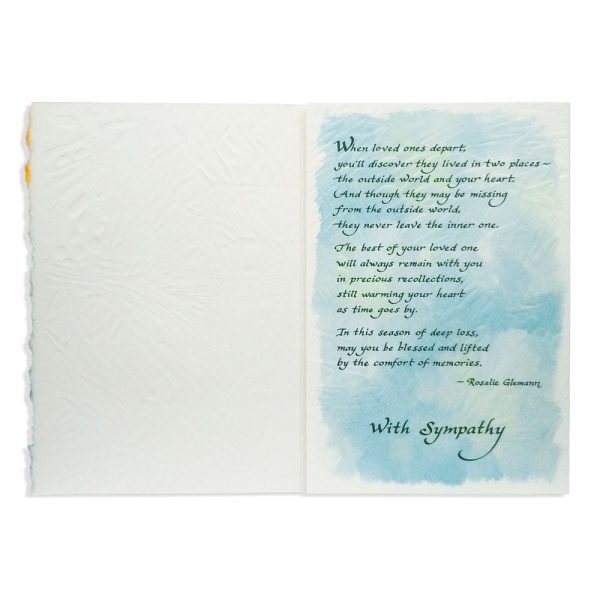 When loved ones depart,
you'll discover they lived in two places ~
the outside world and your heart.
And though they may be missing
from the outside world,
they never leave the inner one.
The best of your loved one
will always remain with you
in precious recollections,
still warming your heart
as time goes by.
In this season of deep loss,
may you be blessed and lifted
by the comfort of memories.
~ Rosalie Glemann
With Sympathy